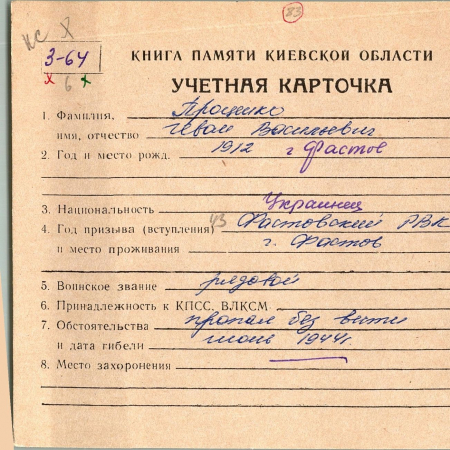 83
КС
3-64
х 6 х
КНИГА ПАМЯТИ КИЕВСКОЙ ОБЛАСТИ
УЧЕТНАЯ КАРТОЧКА
1. Фамилия, Проценко
имя, отчество Иван Васильевич
2. Год и место рожд. 1912 г Фастов
3. Национальность Украинец
4. Год призыва (вступления) 43 Фастовский РВК
и место проживания г. Фастов
5. Воинское звание рядовой
6. Принадлежность к КПСС, ВЛКСМ
7. Обстоятельства пропал без вести
и дата гибели июнь 1944г.
8. Место захоронения